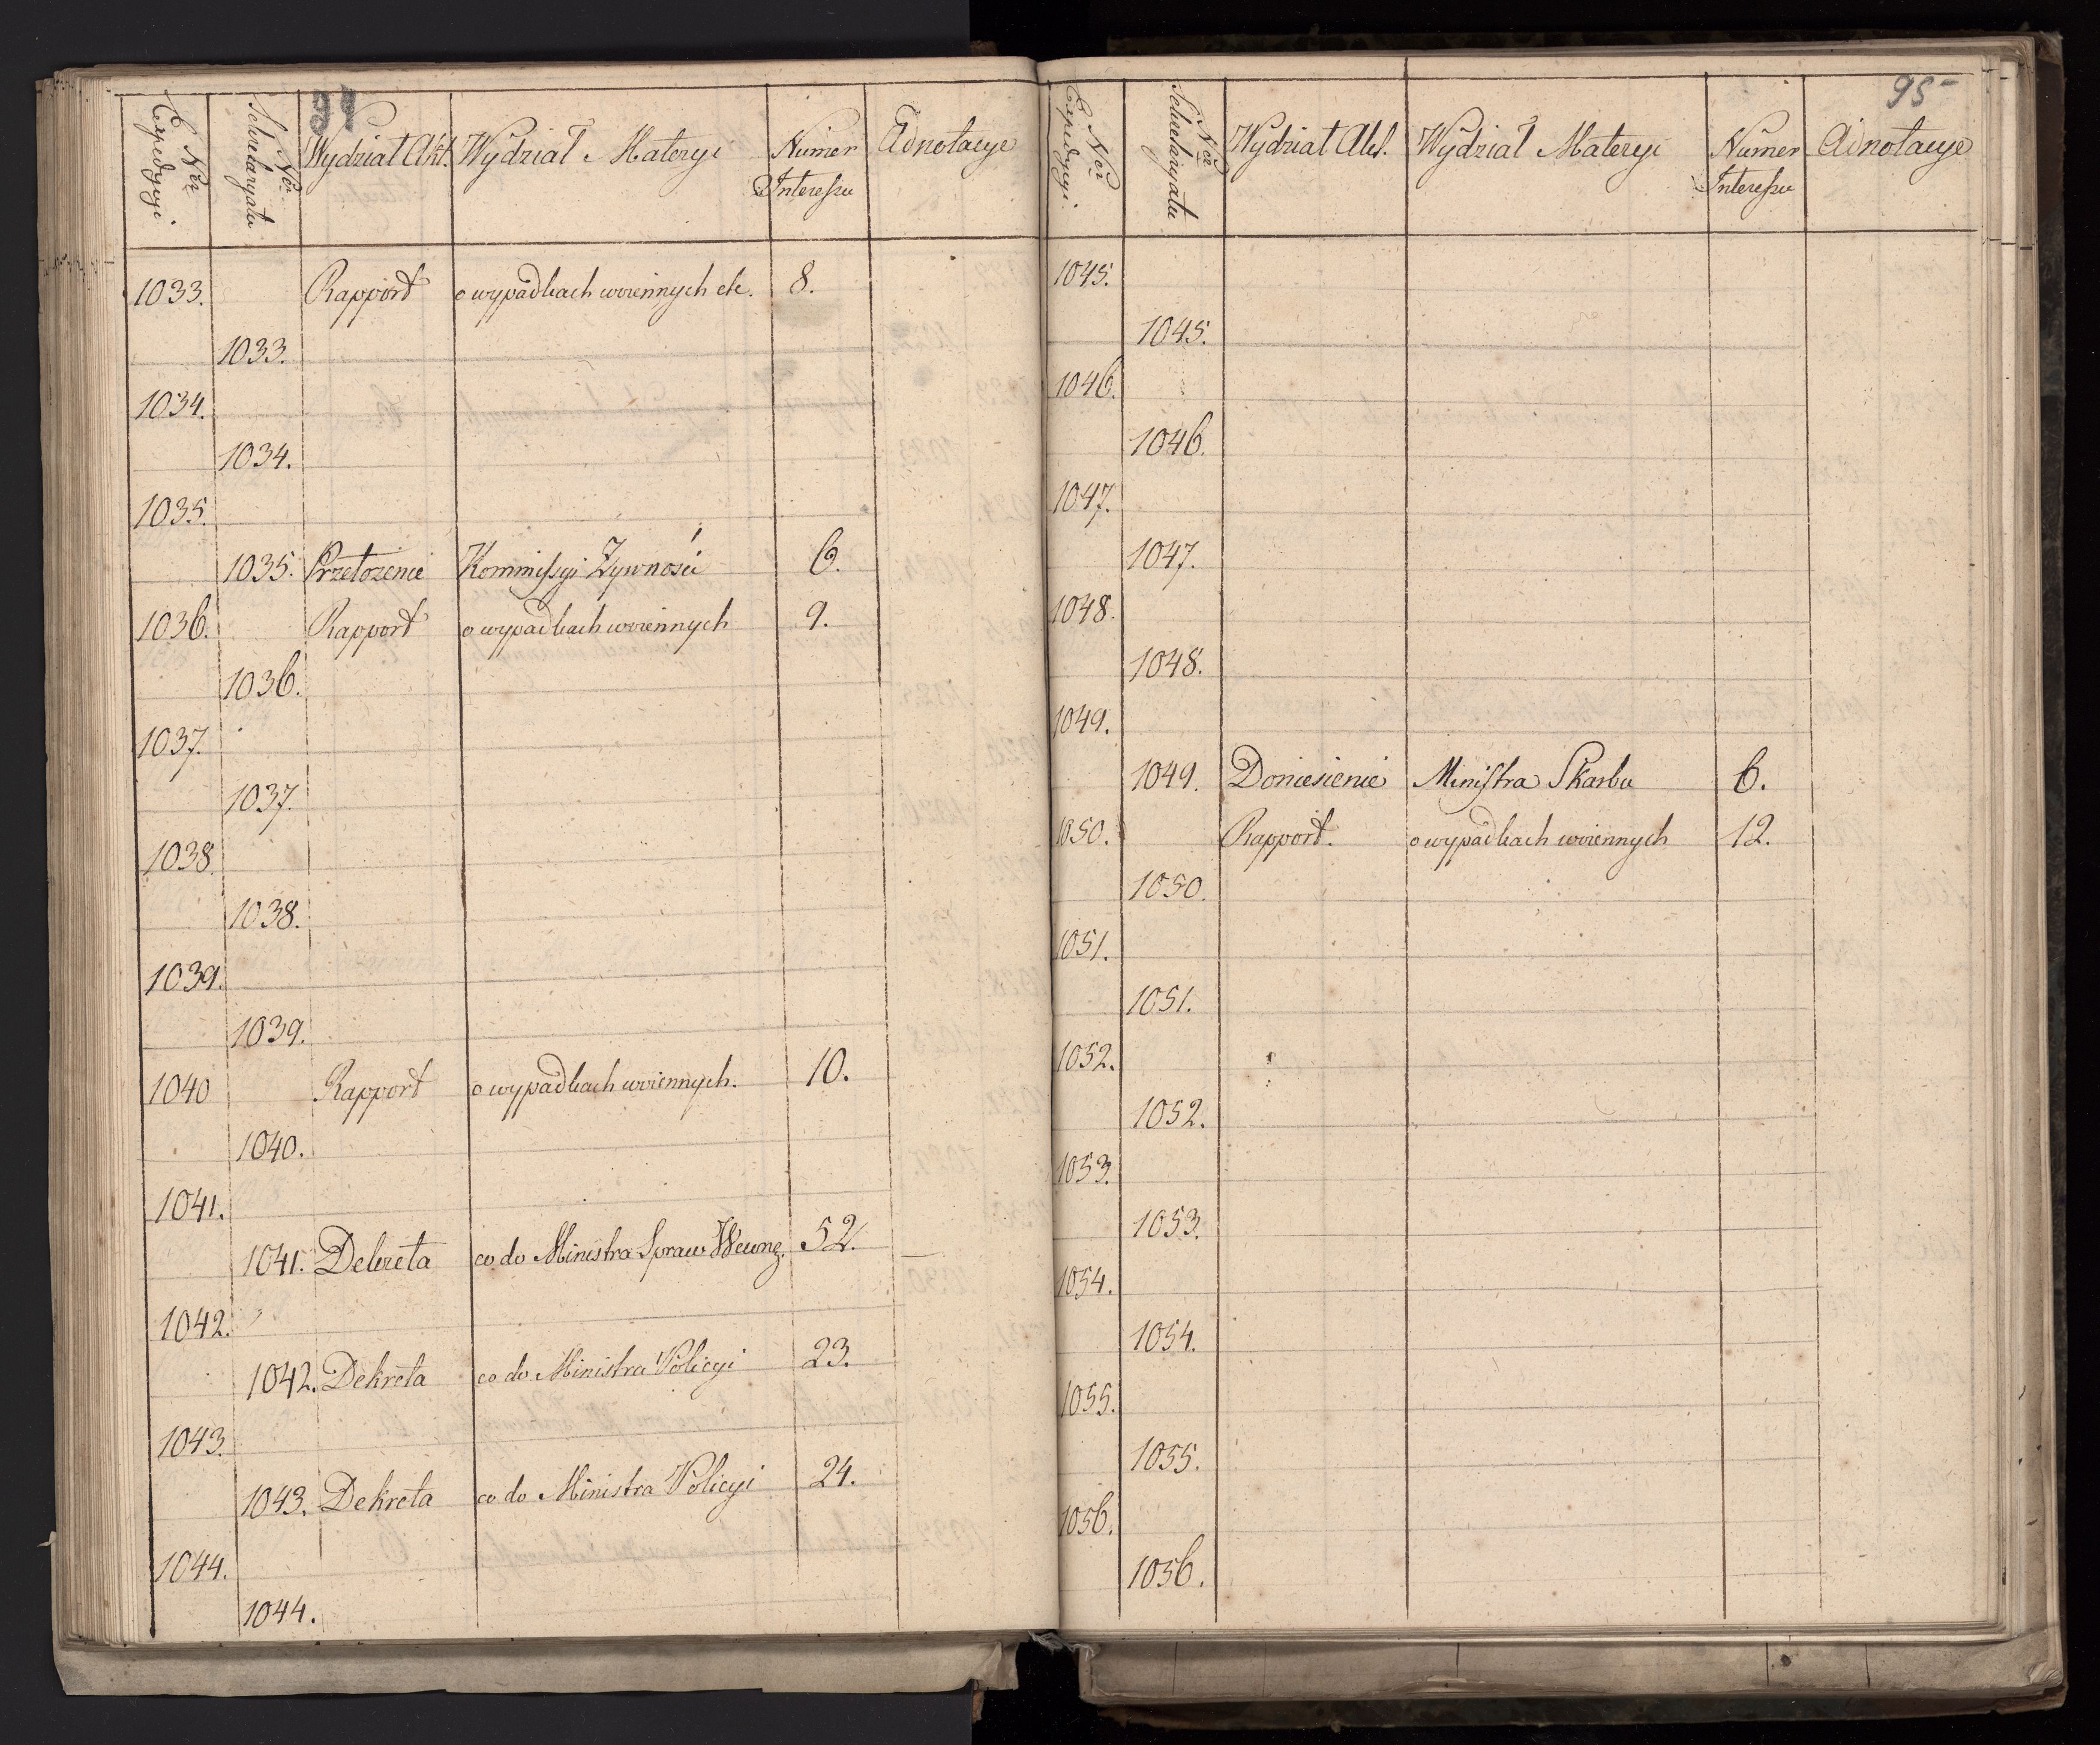 94
Nro Expedycyi.
Nro Sekretaryatu
Wydział Akt.
Wydział Materyi
Numer Interessu
Adnotacye
1033. Rapport o wypadkach woiennych etc. 8.
1033.
1034.
1034.
1035.
1035. Przełożenie Kommissyi Żywności 6.
1036. Rapport o wypadkach woiennych 9.
1036.
1037.
1037.
1038.
1038.
1039.
1039.
1040 Rapport o wypadkach woiennych. 10.
1040.
1041.
1041. Dekreta co do Ministra Spraw Wewnę. 52.
1042.
1042. Dekreta co do Ministra Policyi 23.
1043.
1043. Dekreta co do Ministra Policyi 24.
1044.
1044.
95
Nro Expedycyi.
Nro Sekretaryatu
Wydział Akt.
Wydział Materyi
Numer Interessu
Adnotacye
1045.
1045.
1046.
1046.
1047.
1047.
1048.
1048.
1049.
1049. Doniesienie Ministra Skarbu 6.
1050. Rapport. o wypadkach woiennych 12.
1050.
1051.
1051.
1052.
1052.
1053.
1053.
1054.
1054.
1055.
1055.
1056.
1056.